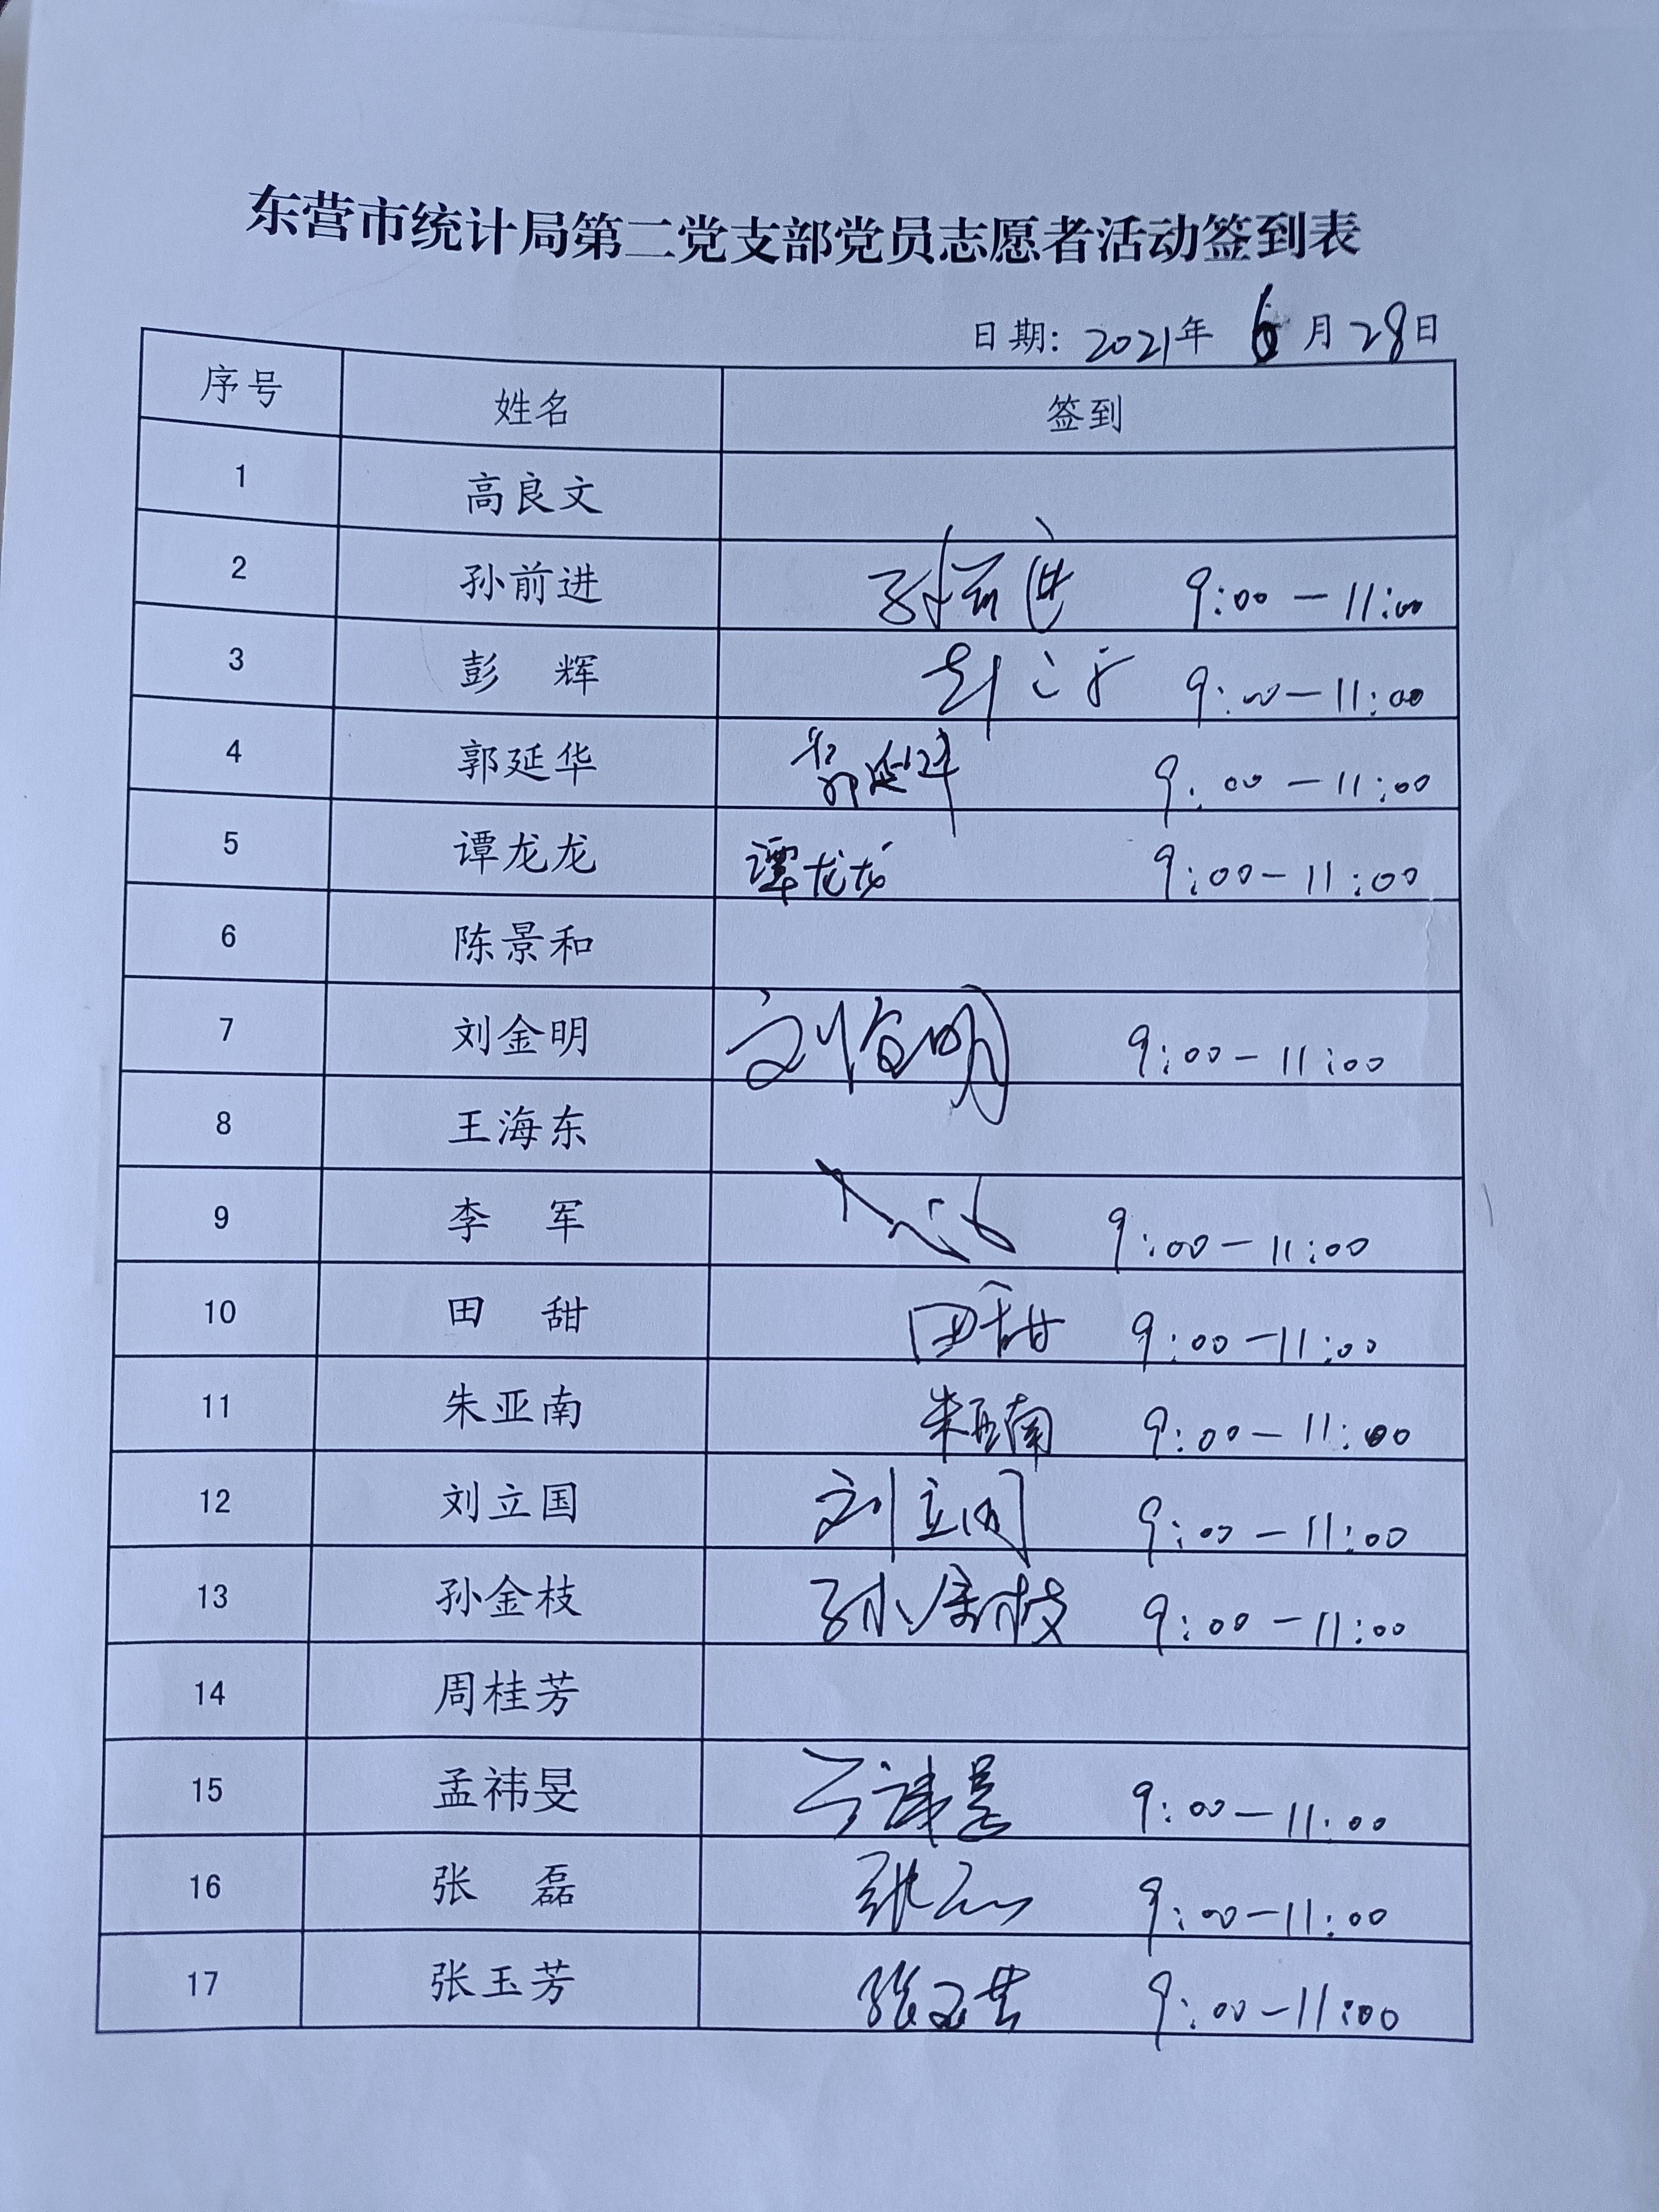 东营市统计局第二党支部党员志愿者活动签到表
日期: 2021年 6月28日
序号 姓名 签到
1 高良文
2 孙前进 孙前进 9:00-11:00
3 彭 辉 9:00-11:00
4 郭延华 郭延华 9:00-11:00
5 谭龙龙 谭龙龙 9:00-11:00
6 陈景和
7 刘金明 刘金明 9:00-11:00
8 王海东
9 李 军 9:00-11:00
10 田 甜 田甜 9:00-11:00
11 朱亚南 朱亚南 9:00-11:00
12 刘立国 刘立国 9:00-11:00
13 孙金枝 孙金枝 9:00-11:00
14 周桂芳
15 孟祎旻 9:00-11:00
16 张 磊 张磊 9:00-11:00
17 张玉芳 张玉芳 9:00-11:00